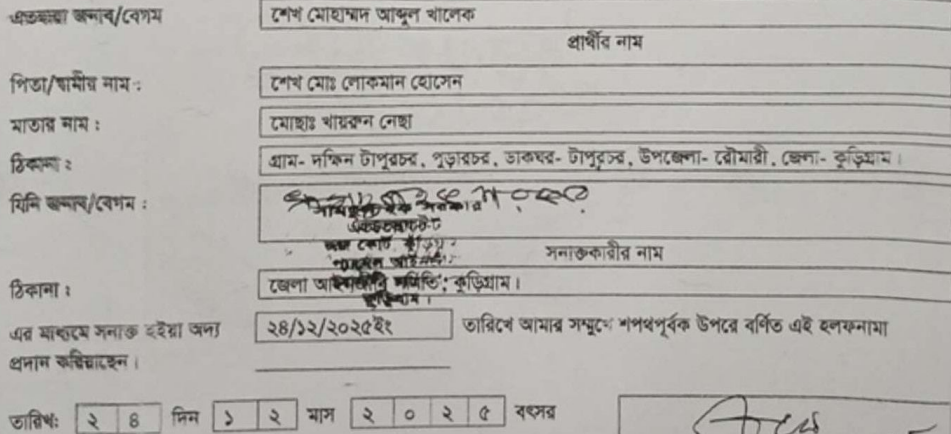 এতদ্বারা জনাব/বেগম শেখ মোহাম্মদ আব্দুল খালেক
প্রার্থীর নাম
পিতা/স্বামীর নাম : শেখ মোঃ লোকমান হোসেন
মাতার নাম : মোছাঃ খায়রুন নেছা
ঠিকানা : গ্রাম- দক্ষিন টাপুরচর, পুড়ারচর, ডাকঘর- টাপুরচর, উপজেলা- রৌমারী, জেলা- কুড়িগ্রাম।
যিনি জনাব/বেগম :
সরকার
এডভোকেট
জজ কোর্ট, কুড়িগ্রাম
সনাক্তকারীর নাম
ঠিকানা : জেলা আইনজীবি সমিতি, কুড়িগ্রাম।
কুড়িগ্রাম।
এর মাধ্যমে সনাক্ত হইয়া অদ্য ২৪/১২/২০২৫ইং তারিখে আমার সম্মুখে শপথপূর্বক উপরে বর্ণিত এই হলফনামা
প্রদান করিয়াছেন।
তারিখঃ ২ ৪ দিন ১ ২ মাস ২ ০ ২ ৫ বৎসর